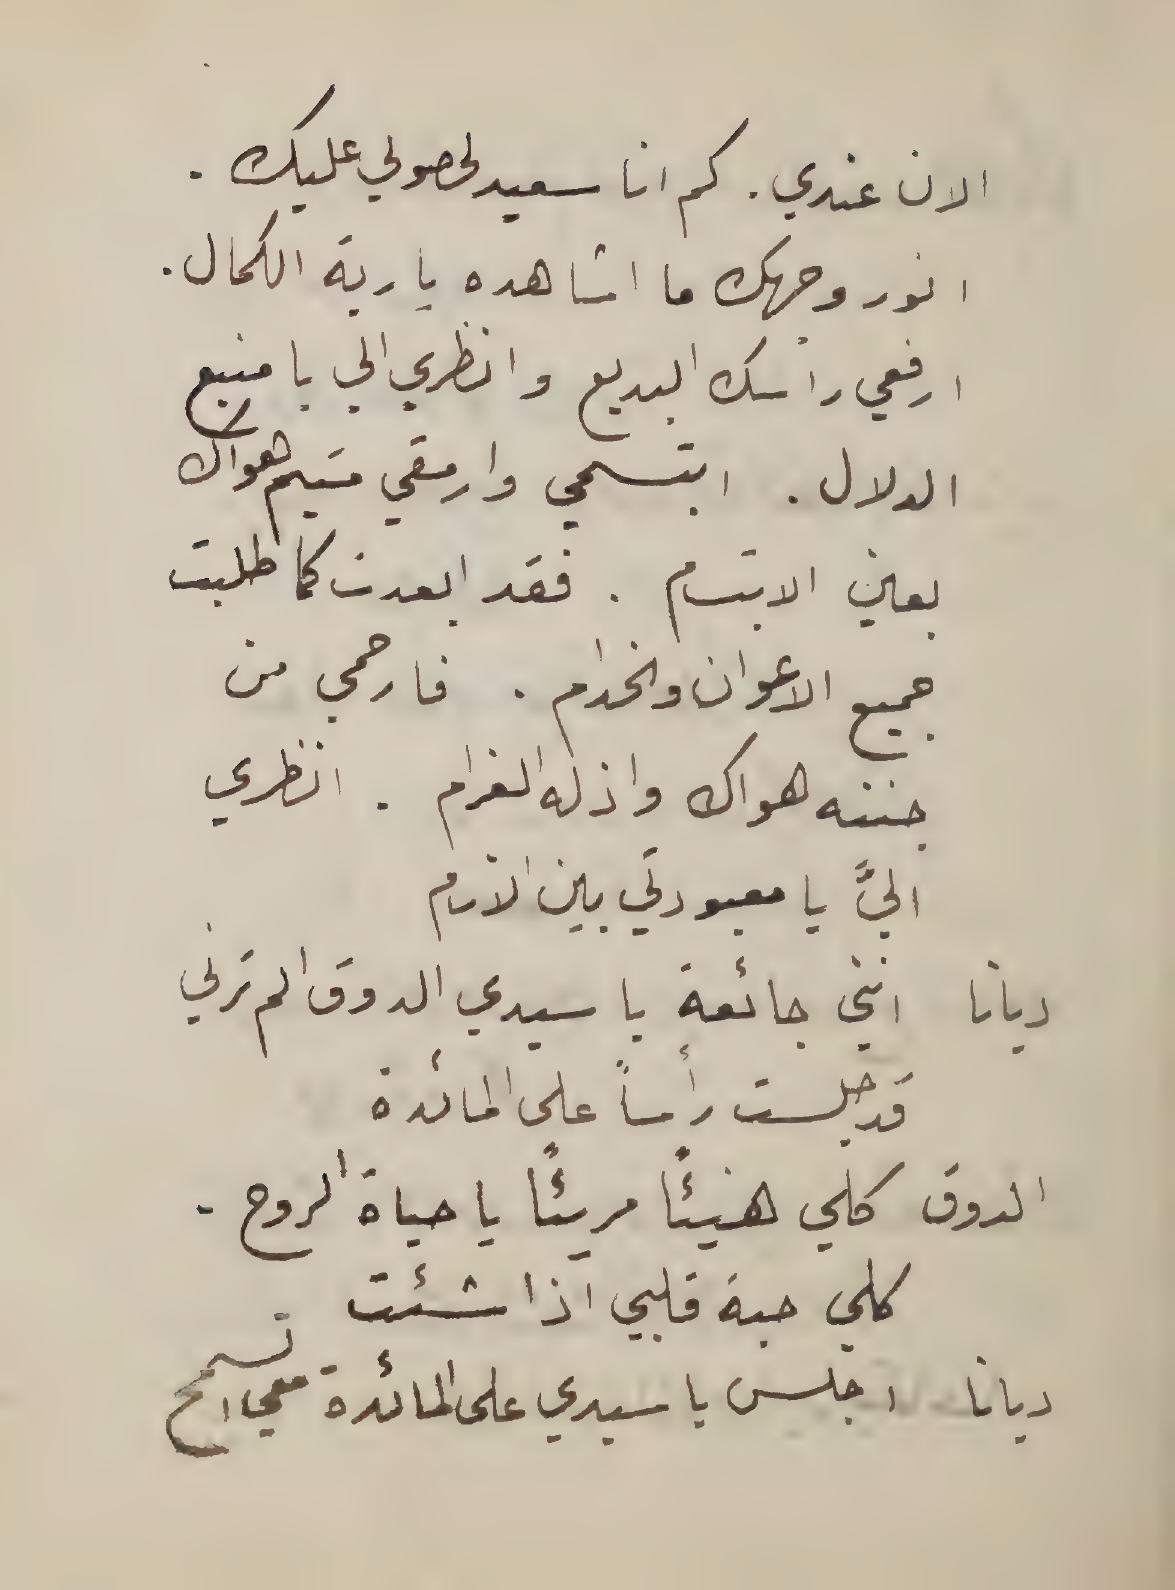 الان عندي . كم انا سعيد لحصولي عليك .
انور وجهك ما اشاهده يا ربة الكمال .
ارفعي راسك البديع وانظري الي يا منبع
الدلال . ابتسمي وارمقي متيم هواك
بعين الابتسام . فقد ابعدت كما طلبت
جميع الاعوان والخدام . فارحمي من
جننه هواك واذله الغرام . انظري
اليَّ يا معبودتي بين الانام
ديانا انني جائعة يا سيدي الدوق الم ترني
قد جلست رأساً على المائدة
الدوق كلي هنيئًا مريئًا يا حياة الروح .
كلي حبة قلبي اذا شئت
ديانا اجلس يا سيدي على المائدة معي الا تسمح